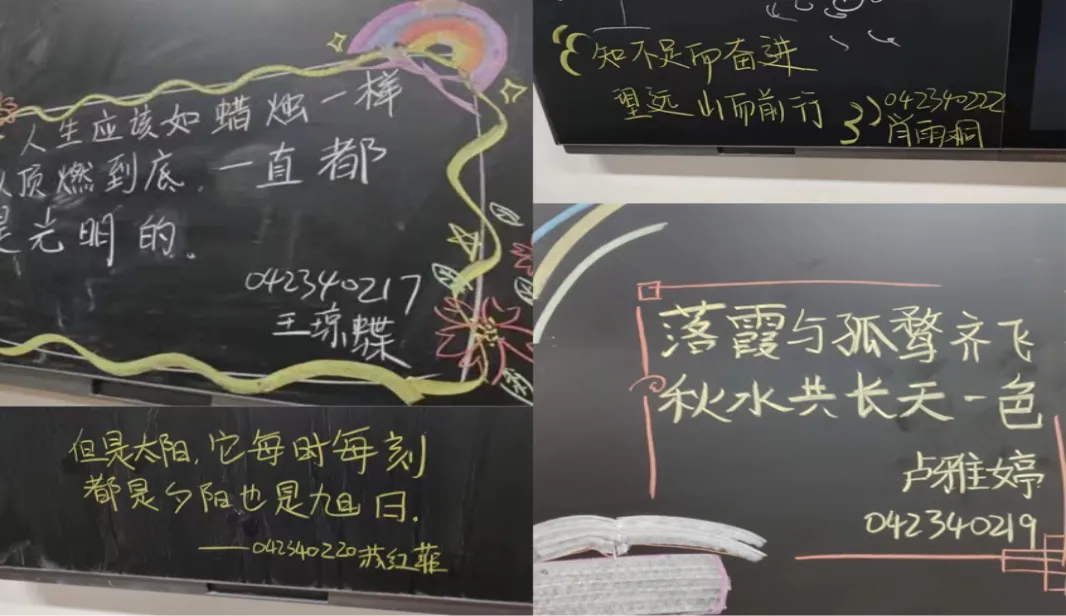 人生应该如蜡烛一样
从顶燃到底,一直都
是光明的。
042340217
王琼蝶
知不足而奋进
望远山而前行
042340222
肖雨桐
但是太阳,它每时每刻
都是夕阳也是旭日.
——042340220 红菲
落霞与孤鹜齐飞
秋水共长天一色
卢雅婷
042340219